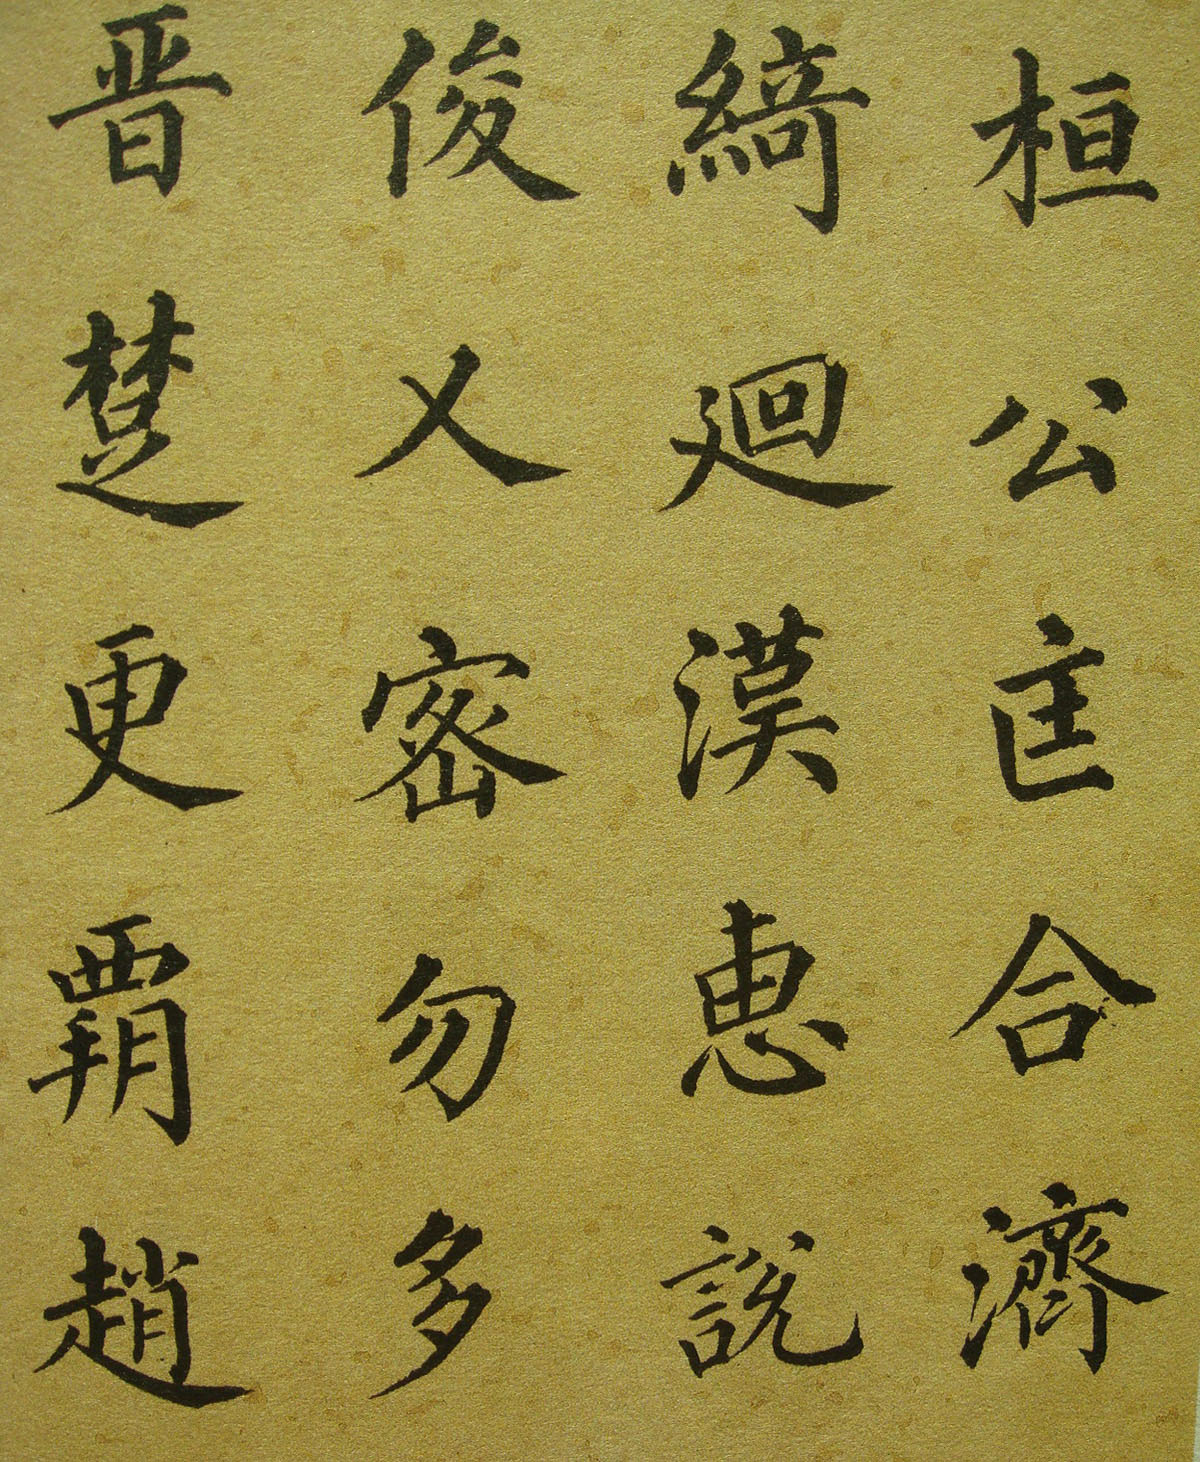 桓公匡合濟
綺迴漢惠說
俊乂密勿多
晉楚更霸趙